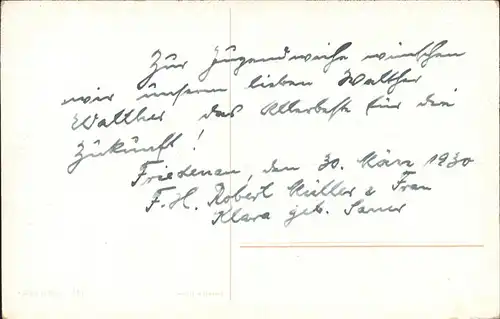 Zur Jugendweihe wünschen
wir unserm lieben Walther
Walther das Allerbeste für die
Zukunft!
Friedenau, den 30. März 1930
F. H. Robert Müller & Frau
Klara geb. Sauer